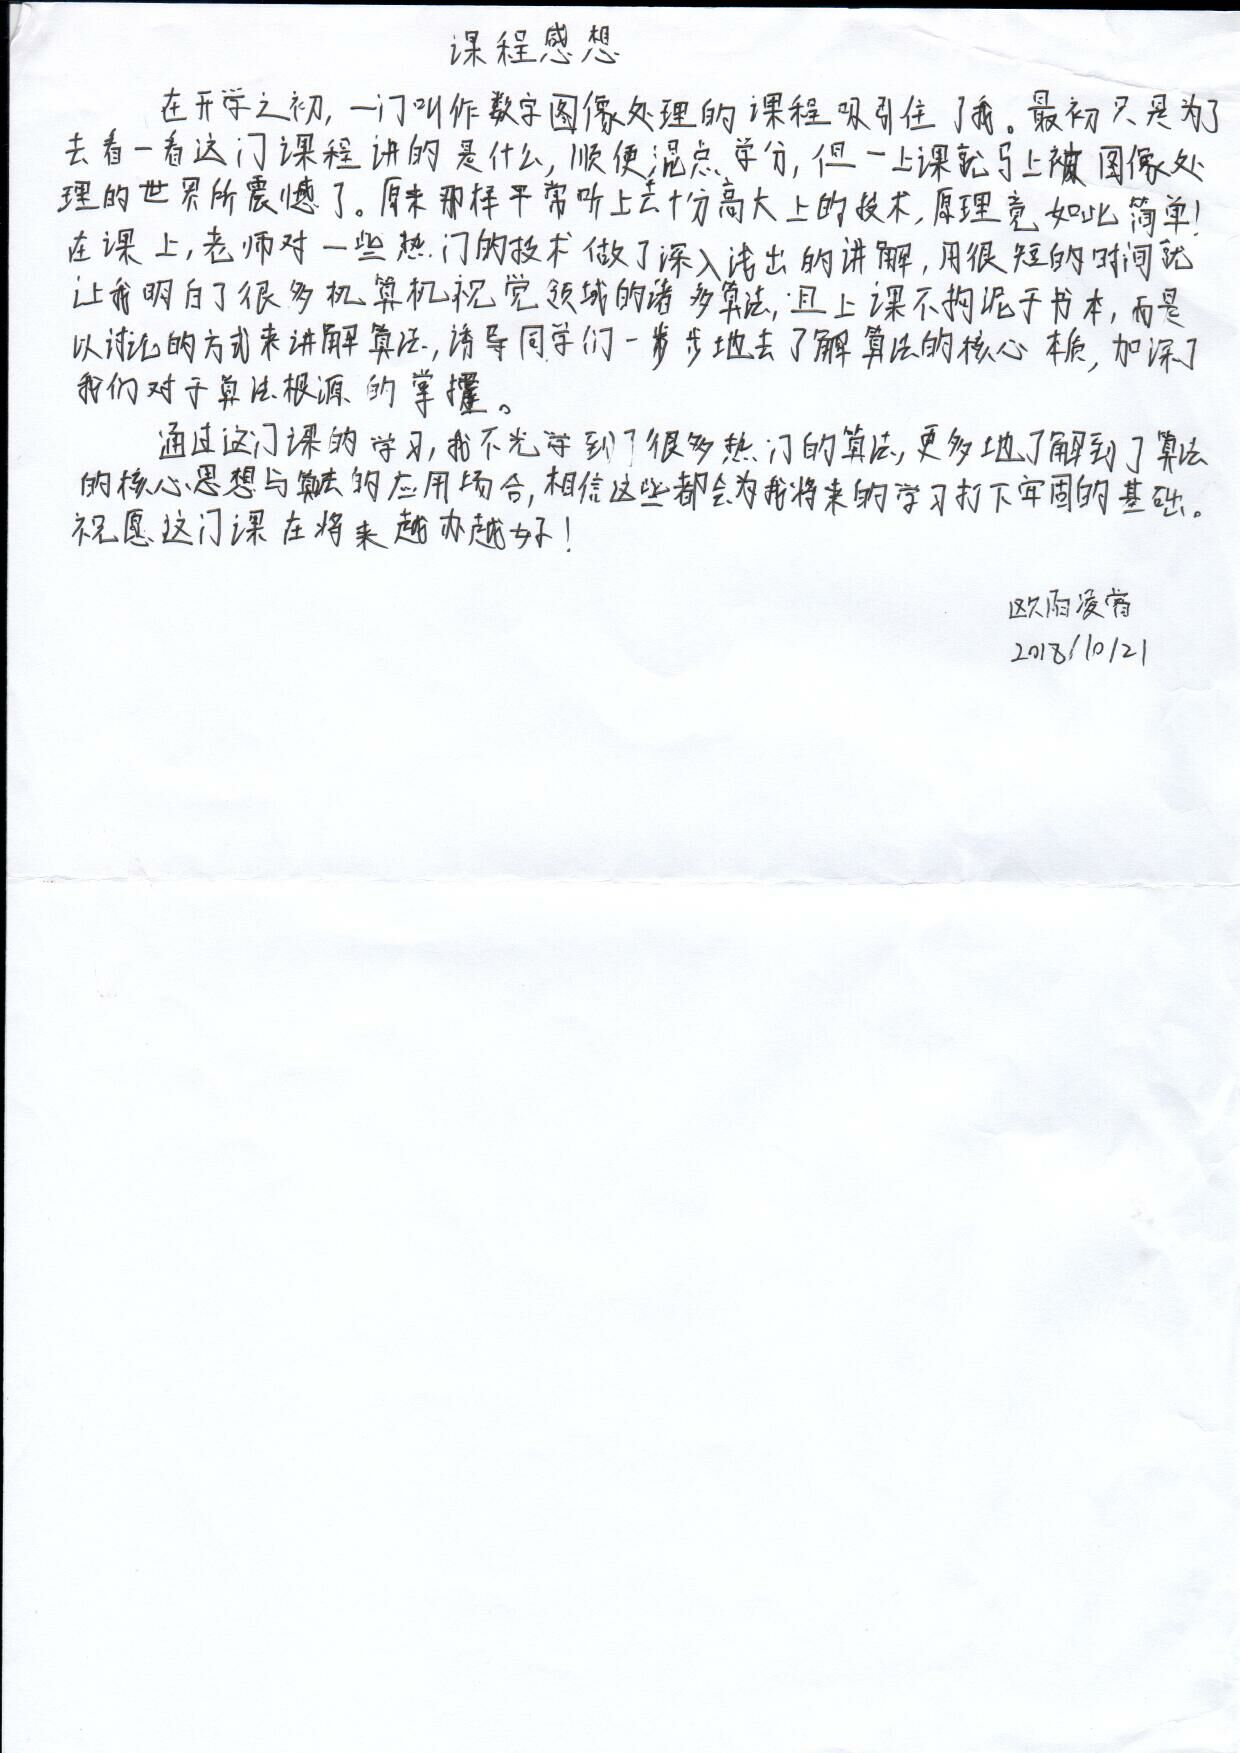 课程感想
在开学之初，一门叫作数字图像处理的课程吸引住了我。最初只是为了
去看一看这门课程讲的是什么，顺便混点学分，但一上课就马上被图像处
理的世界所震憾了。原来那样平常听上去十分高大上的技术，原理竟如此简单！
在课上，老师对一些热门的技术做了深入浅出的讲解，用很短的时间就
让我明白了很多机算机视觉领域的诸多算法，且上课不拘泥于书本，而是
以讨论的方式来讲解算法，诱导同学们一步步地去了解算法的核心本质，加深了
我们对于算法根源的掌握。
通过这门课的学习，我不光学到了很多热门的算法，更多地了解到了算法
的核心思想与算法的应用场合，相信这些都会为我将来的学习打下牢固的基础。
祝愿这门课在将来越办越好！
欧阳凌霄
2018/10/21